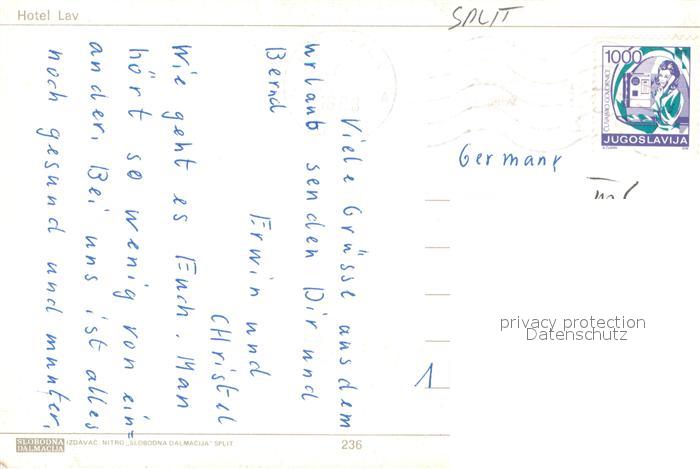 Hotel Lav
SPLIT
1000
ČUVAJMO GOVORNICE
JUGOSLAVIJA
Germany
Viele Grüsse aus dem
urlaub senden Dir und
Bernd
Erwin und
CHristel
Wie geht es Euch. Man
hört so wenig von ein=
ander. Bei uns ist alles
noch gesund und munter.
1
privacy protection
Datenschutz
SLOBODNA
DALMACIJA
IZDAVAČ: NITRO „SLOBODNA DALMACIJA" SPLIT
236